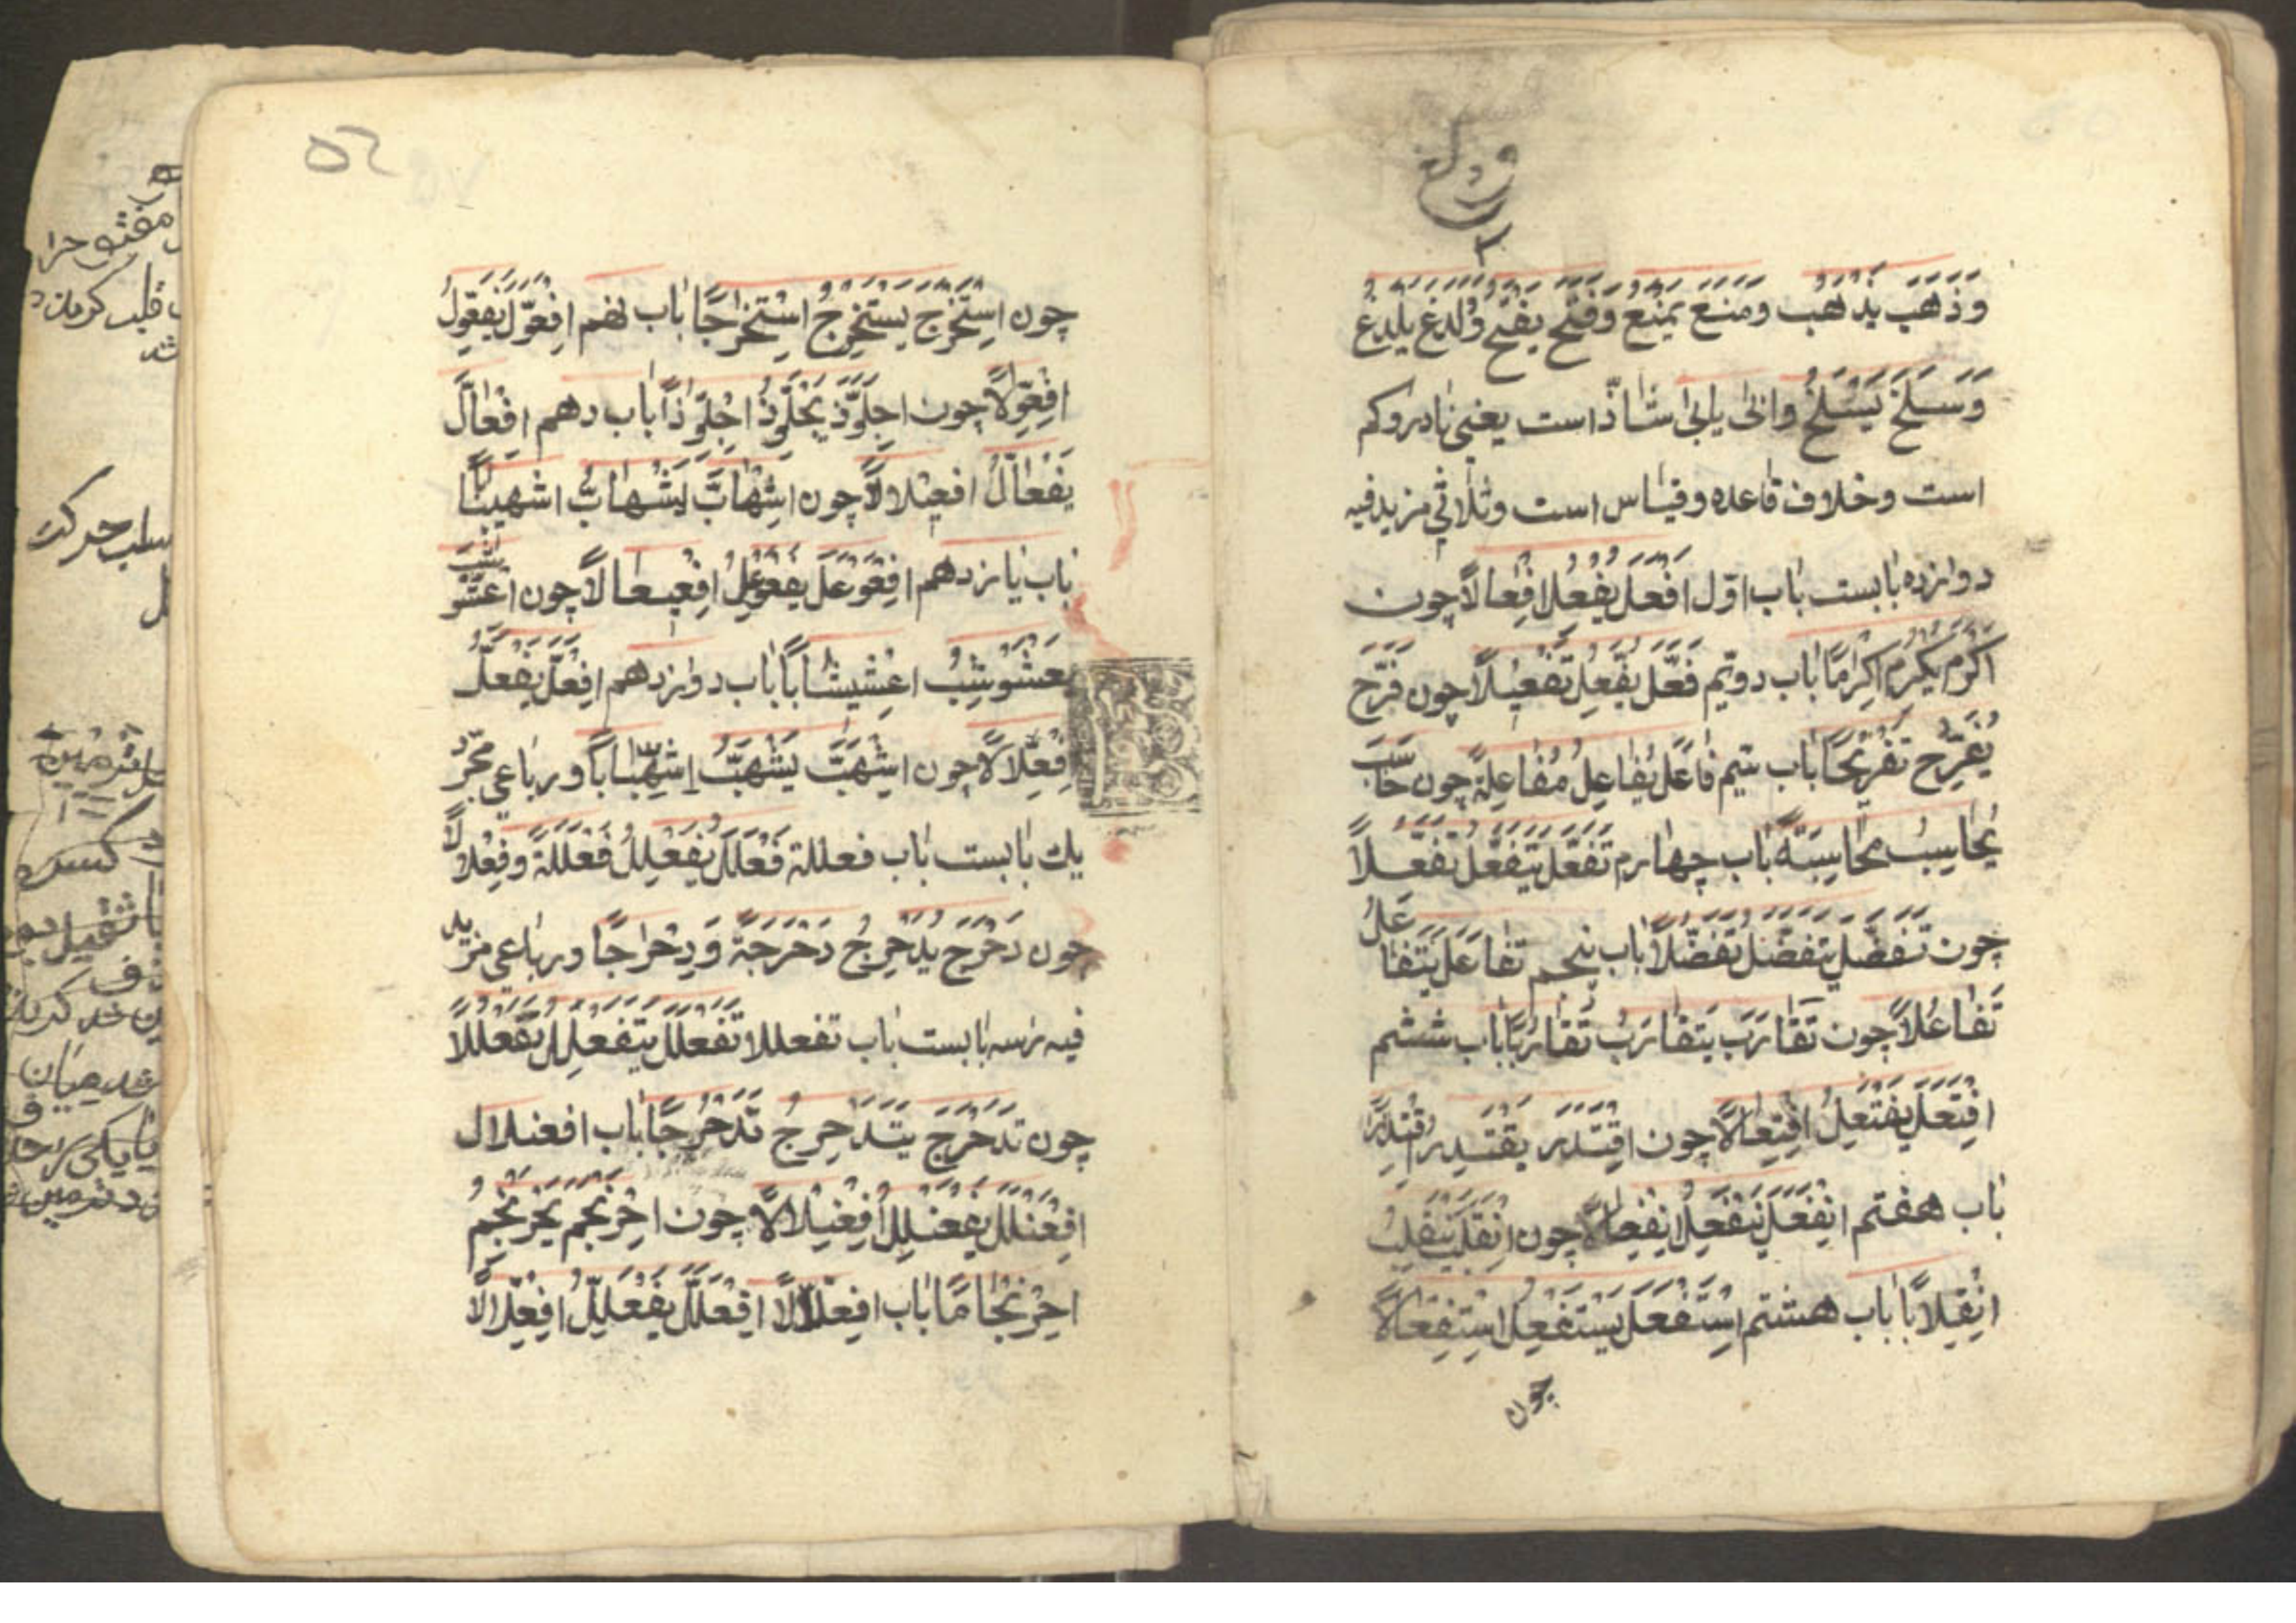 وَذَهَبَ يَذْهَبُ وَمَنَعَ يَمْنَعُ وَفَتَحَ يَفْتَحُ وَلَدَغَ يَلْدَغُ
وَسَلَخَ يَسْلَخُ وابٰى یابیٰ شاذّ است یعنی نادر و کم
است و خلاف قاعده و قیاس است و ثلاثی مزید فیه
دوازده بابست باب اوّل اَفْعَلَ يُفْعِلُ اِفْعالاً چون
اَكْرَمَ يُكْرِمُ اِكْرٰمًا باب دویّم فَعَّلَ يُفَعِّلُ تَفْعِيلاً چون فَرَّحَ
يُفَرِّحُ تَفْرِيحًا باب سیّم فٰاعَلَ يُفٰاعِلُ مُفٰاعِلَةً چون حٰاسَبَ
يُحٰاسِبُ مُحٰاسِبَةً باب چهارم تَفَعَّلَ يَتَفَعَّلُ تَفَعُّلاً
چون تَفَضَّلَ يَتَفَضَّلُ تَفَضُّلاً باب پنجم تَفٰاعَلَ يَتَفٰاعَلُ
تَفٰاعُلاً چون تَقٰارَبَ يَتَقٰارَبُ تَقٰارُبًا باب ششم
اِفْتَعَلَ يَفْتَعِلُ اِفْتِعٰالاً چون اِقْتَدَرَ يَقْتَدِرُ اِقْتِدٰرًا
باب هفتم اِنْفَعَلَ يَنْفَعِلُ اِنْفِعٰالاً چون اِنْقَلَبَ يَنْقَلِبُ
اِنْقِلابًا باب هشتم اِسْتَفْعَلَ يَسْتَفْعِلُ اِسْتِفْعٰالاً
چون
٥٢
چون اِسْتَخْرَجَ يَسْتَخْرِجُ اِسْتِخْرٰاجًا باب نهم اِفْعَوَّلَ يَفْعَوِّلُ
اِفْعِوّٰلاً چون اِجْلَوَّذَ يَجْلَوِّذُ اِجْلِوّٰذاً باب دهم اِفْعٰالَّ
يَفْعٰالُّ افعيلالاً چون اِشْهٰابَّ يَشْهٰابُّ اشهیبابًا
باب یازدهم اِفْعَوْعَلَ يَفْعَوْعِلُ اِفْعِيعٰالاً چون اِعْشَوْشَبَ
يَعْشَوْشِبُ اِعْشِيشٰابًا باب دوازدهم اِفْعَلَّ يَفْعَلُّ
اِفْعِلّٰالاً چون اِشْهَبَّ يَشْهَبُّ اِشْهِبّٰاباً و رباعی مجرّد
یک بابست باب فعللة فَعْلَلَ يُفَعْلِلُ فَعْلَلَةً وَفِعْلٰالاً
چون دَحْرَجَ يُدَحْرِجُ دَحْرَجَةً وَدِحْرٰاجًا و رباعی مزید
فیه را سه بابست باب تفعللا تَفَعْلَلَ يَتَفَعْلِلُ تَفَعْلُلاً
چون تَدَحْرَجَ يَتَدَحْرِجُ تَدَحْرُجًا باب افعنلال
اِفْعَنْلَلَ يَفْعَنْلِلُ اِفْعِنْلٰالاً چون اِحْرَنْجَمَ يَحْرَنْجِمُ
اِحْرِنْجٰامًا باب افعلّالاً اِفْعَلَلَّ يَفْعَلِلُّ اِفْعِلّالاً